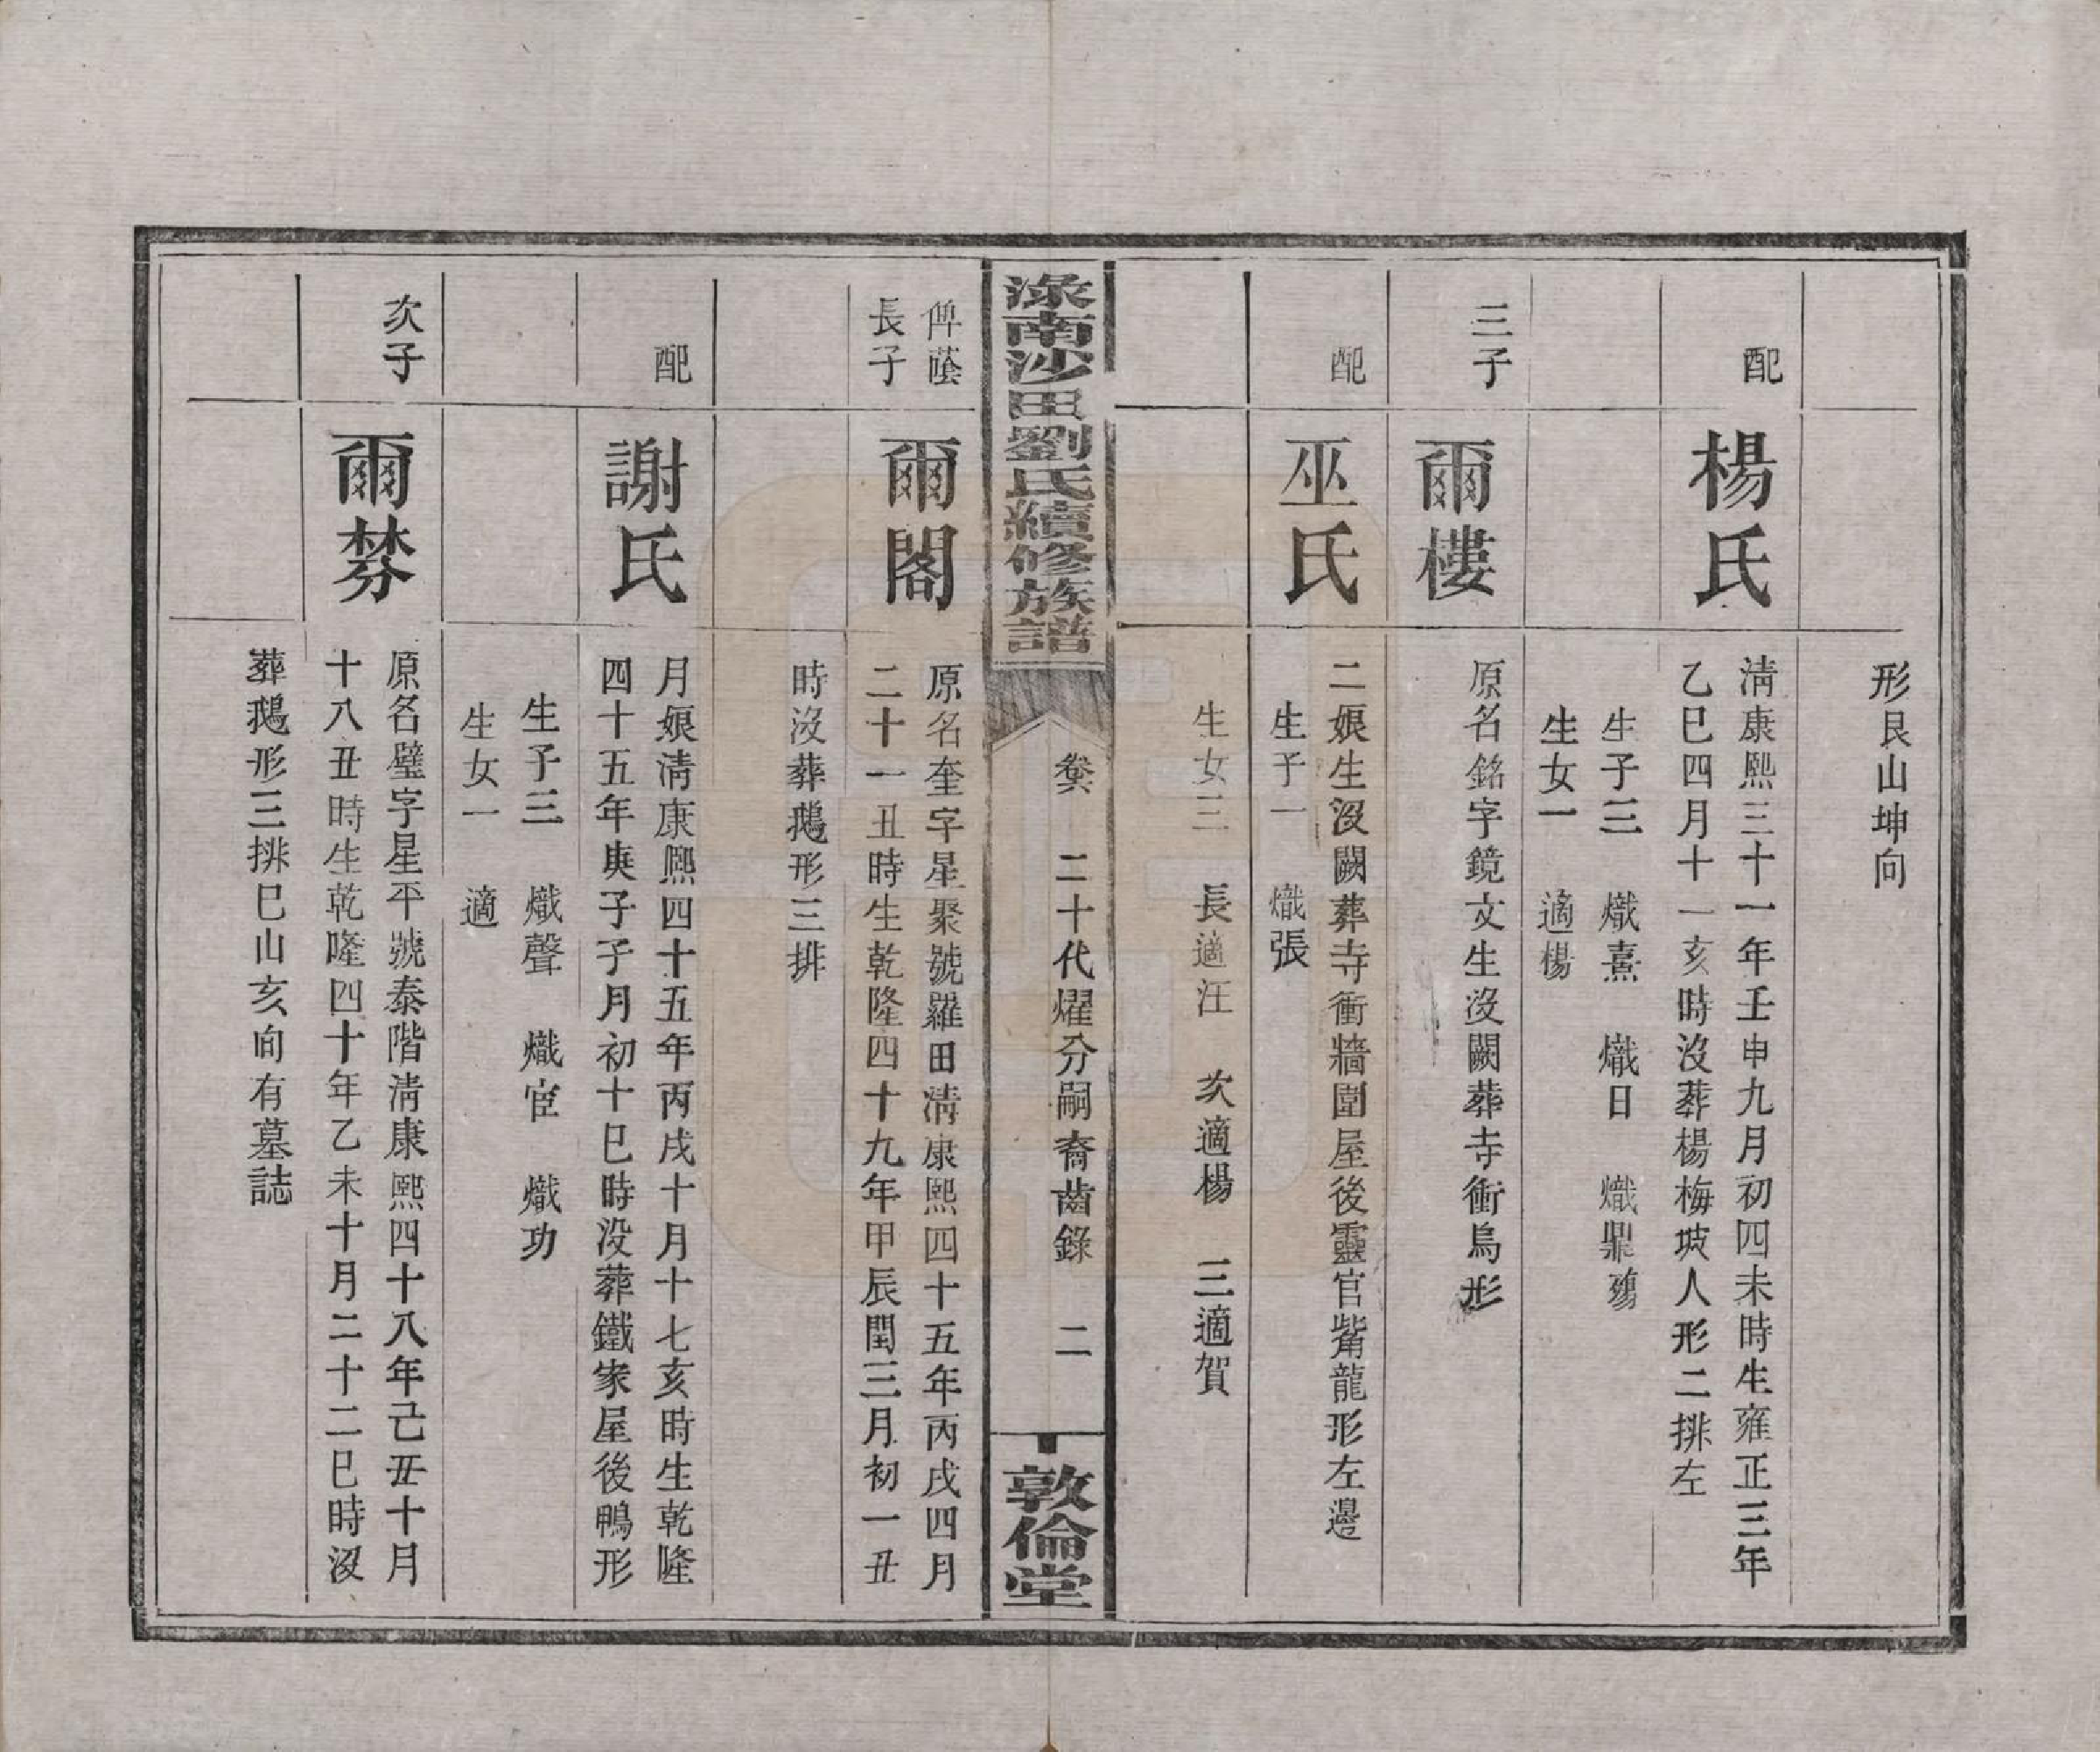 形艮山坤向
配
楊氏
淸康熙三十一年壬申九月初四未時生雍正三年
乙巳四月十一亥時沒葬楊梅坡人形二排左
生子三　熾熹　熾日　熾鼎殤
生女一　適楊
三子
爾樓
原名銘字鏡文生沒闕葬寺衝鳥形
配
巫氏
二娘生沒闕葬寺衝牆圍屋後靈官嘴龍形左邊
生子一　熾張
生女三　長適汪　次適楊　三適賀
淥南沙田劉氏續修族譜
卷六　二十代燿分嗣裔齒錄　二
敦倫堂
俾蔭
長子
爾閣
原名奎字星聚號羅田淸康熙四十五年丙戌四月
二十一丑時生乾隆四十九年甲辰閏三月初一丑
時沒葬鵝形三排
配
謝氏
月娘淸康熙四十五年丙戌十月十七亥時生乾隆
四十五年庚子子月初十巳時沒葬鐵家屋後鴨形
生子三　熾聲　熾宦　熾功
生女一　適
次子
爾棼
原名璧字星平號泰階淸康熙四十八年己丑十月
十八丑時生乾隆四十年乙未十月二十二巳時沒
葬鵝形三排巳山亥向有墓誌